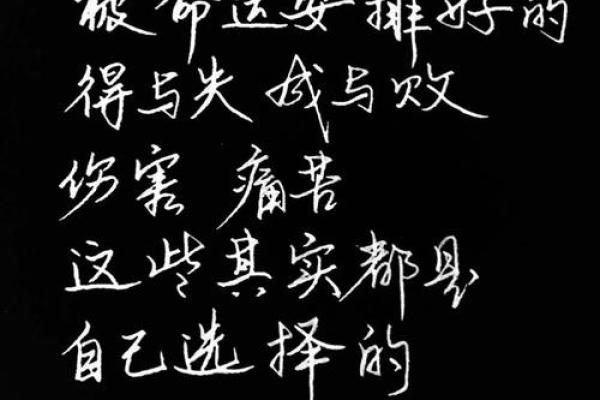 被命运安排好的
得与失 成与败
伤害 痛苦
这些其实都是
自己选择的